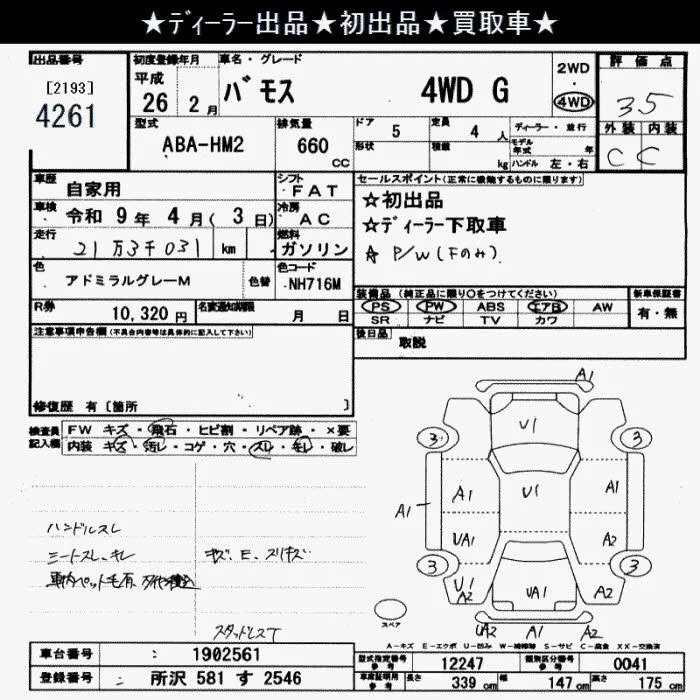 ★ディーラー出品★初出品★買取車★
出品番号
[2193]
4261
初度登録年月
平成
26 年 2 月
車名・グレード
バモス 4WD G
2WD
・
4WD
評価点
3.5
外装 内装
C C
型式
ABA-HM2
排気量
660 CC
ドア 5
形状
定員 4 人
積載 kg
ディーラー・並行
モデル年式 年
ハンドル 左・右
車歴 自家用
車検 令和 9 年 4 月 ( 3 日)
走行 21万3千031 km
色 アドミラルグレーM
色替
シフト FAT
冷房 AC
燃料 ガソリン
色コード NH716M
セールスポイント(正常に機能するものに限ります)
☆初出品
☆ディーラー下取車
☆ P/W (Fのみ)
R券 10,320 円
名変通知期限 月 日
装備品 (純正品に限り○をつけてください)
PS PW ABS エアB AW
SR ナビ TV カワ
新車保証書
有・無
後日品 取説
注意事項申告欄(不具合内容等は具体的に記入して下さい)
修復歴 有 [箇所 ]
検査員記入欄
FW キズ・飛石・ヒビ割・リペア跡・×要
内装 キズ・汚レ・コゲ・穴・スレ・キレ・破レ
ハンドルスレ
シートスレ、キレ
車内ペット毛有
キズ、E、スリキズ
スタッドレスT
A1
U1
3 3
A1 U1 A1
A1
UA1 A2
3 3
U1 A2 UA1 A2
スペア
UA2 A1 A2
A-キズ E-エクボ U-凹み W-補修跡 S-サビ C-腐食 XX-交換済
車台番号 : 1902561
登録番号 : 所沢 581 す 2546
型式指定番号 参考 12247
類別区分番号 参考 0041
車庫証明用 参考 長さ 339 cm 幅 147 cm 高さ 175 cm